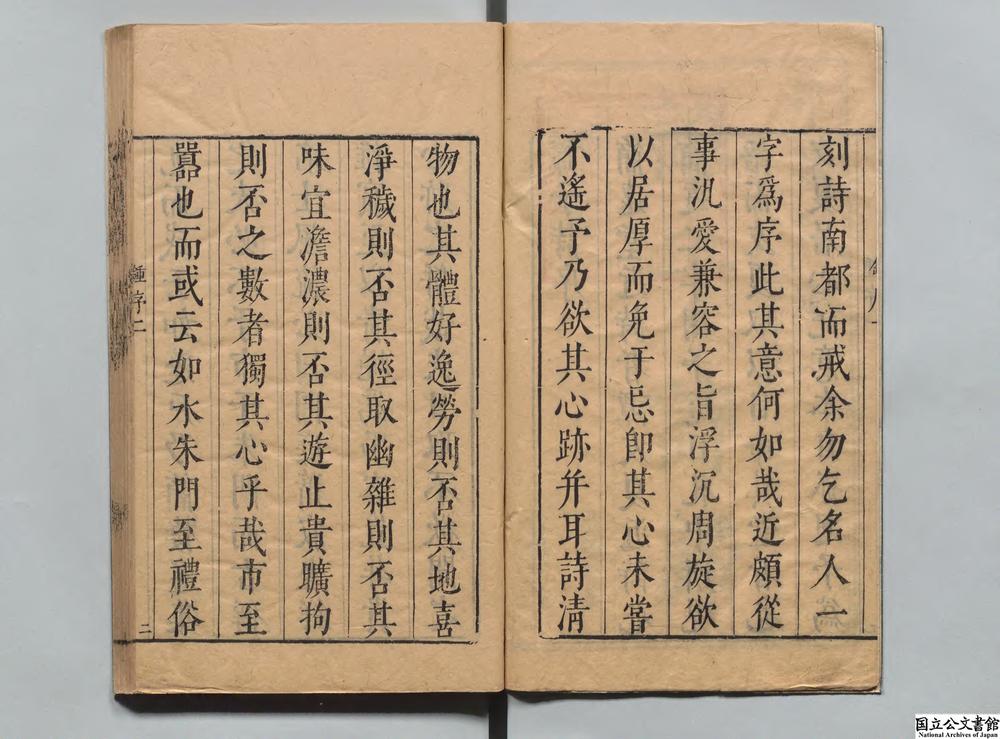 刻詩南都而戒余勿乞名人一
字爲序此其意何如哉近頗從
事汎愛兼容之旨浮沉周旋欲
以居厚而免于忌卽其心未嘗
不遙予乃欲其心跡幷耳詩淸
物也其體好逸勞則否其地喜
淨穢則否其徑取幽雜則否其
味宜澹濃則否其遊止貴曠拘
則否之數者獨其心乎哉市至
囂也而或云如水朱門至禮俗
鍾序二
二
国立公文書館
National Archives of Japan